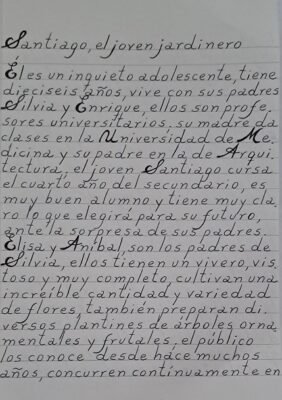 Santiago, el joven jardinero
Él es un inquieto adolescente, tiene
dieciseis años, vive con sus padres
Silvia y Enrique, ellos son profe_
sores universitarios, su madre da
clases en la Universidad de Me_
dicina y su padre en la de Arqui_
tectura, el joven Santiago cursa
el cuarto año del secundario, es
muy buen alumno y tiene muy cla_
ro lo que elegirá para su futuro,
ante la sorpresa de sus padres.
Elisa y Aníbal, son los padres de
Silvia, ellos tienen un vivero, vis_
toso y muy completo, cultivan una
increíble cantidad y variedad
de flores, también preparan di_
versos plantines de árboles orna_
mentales y frutales, el público
los conoce desde hace muchos
años, concurren contínuamente en